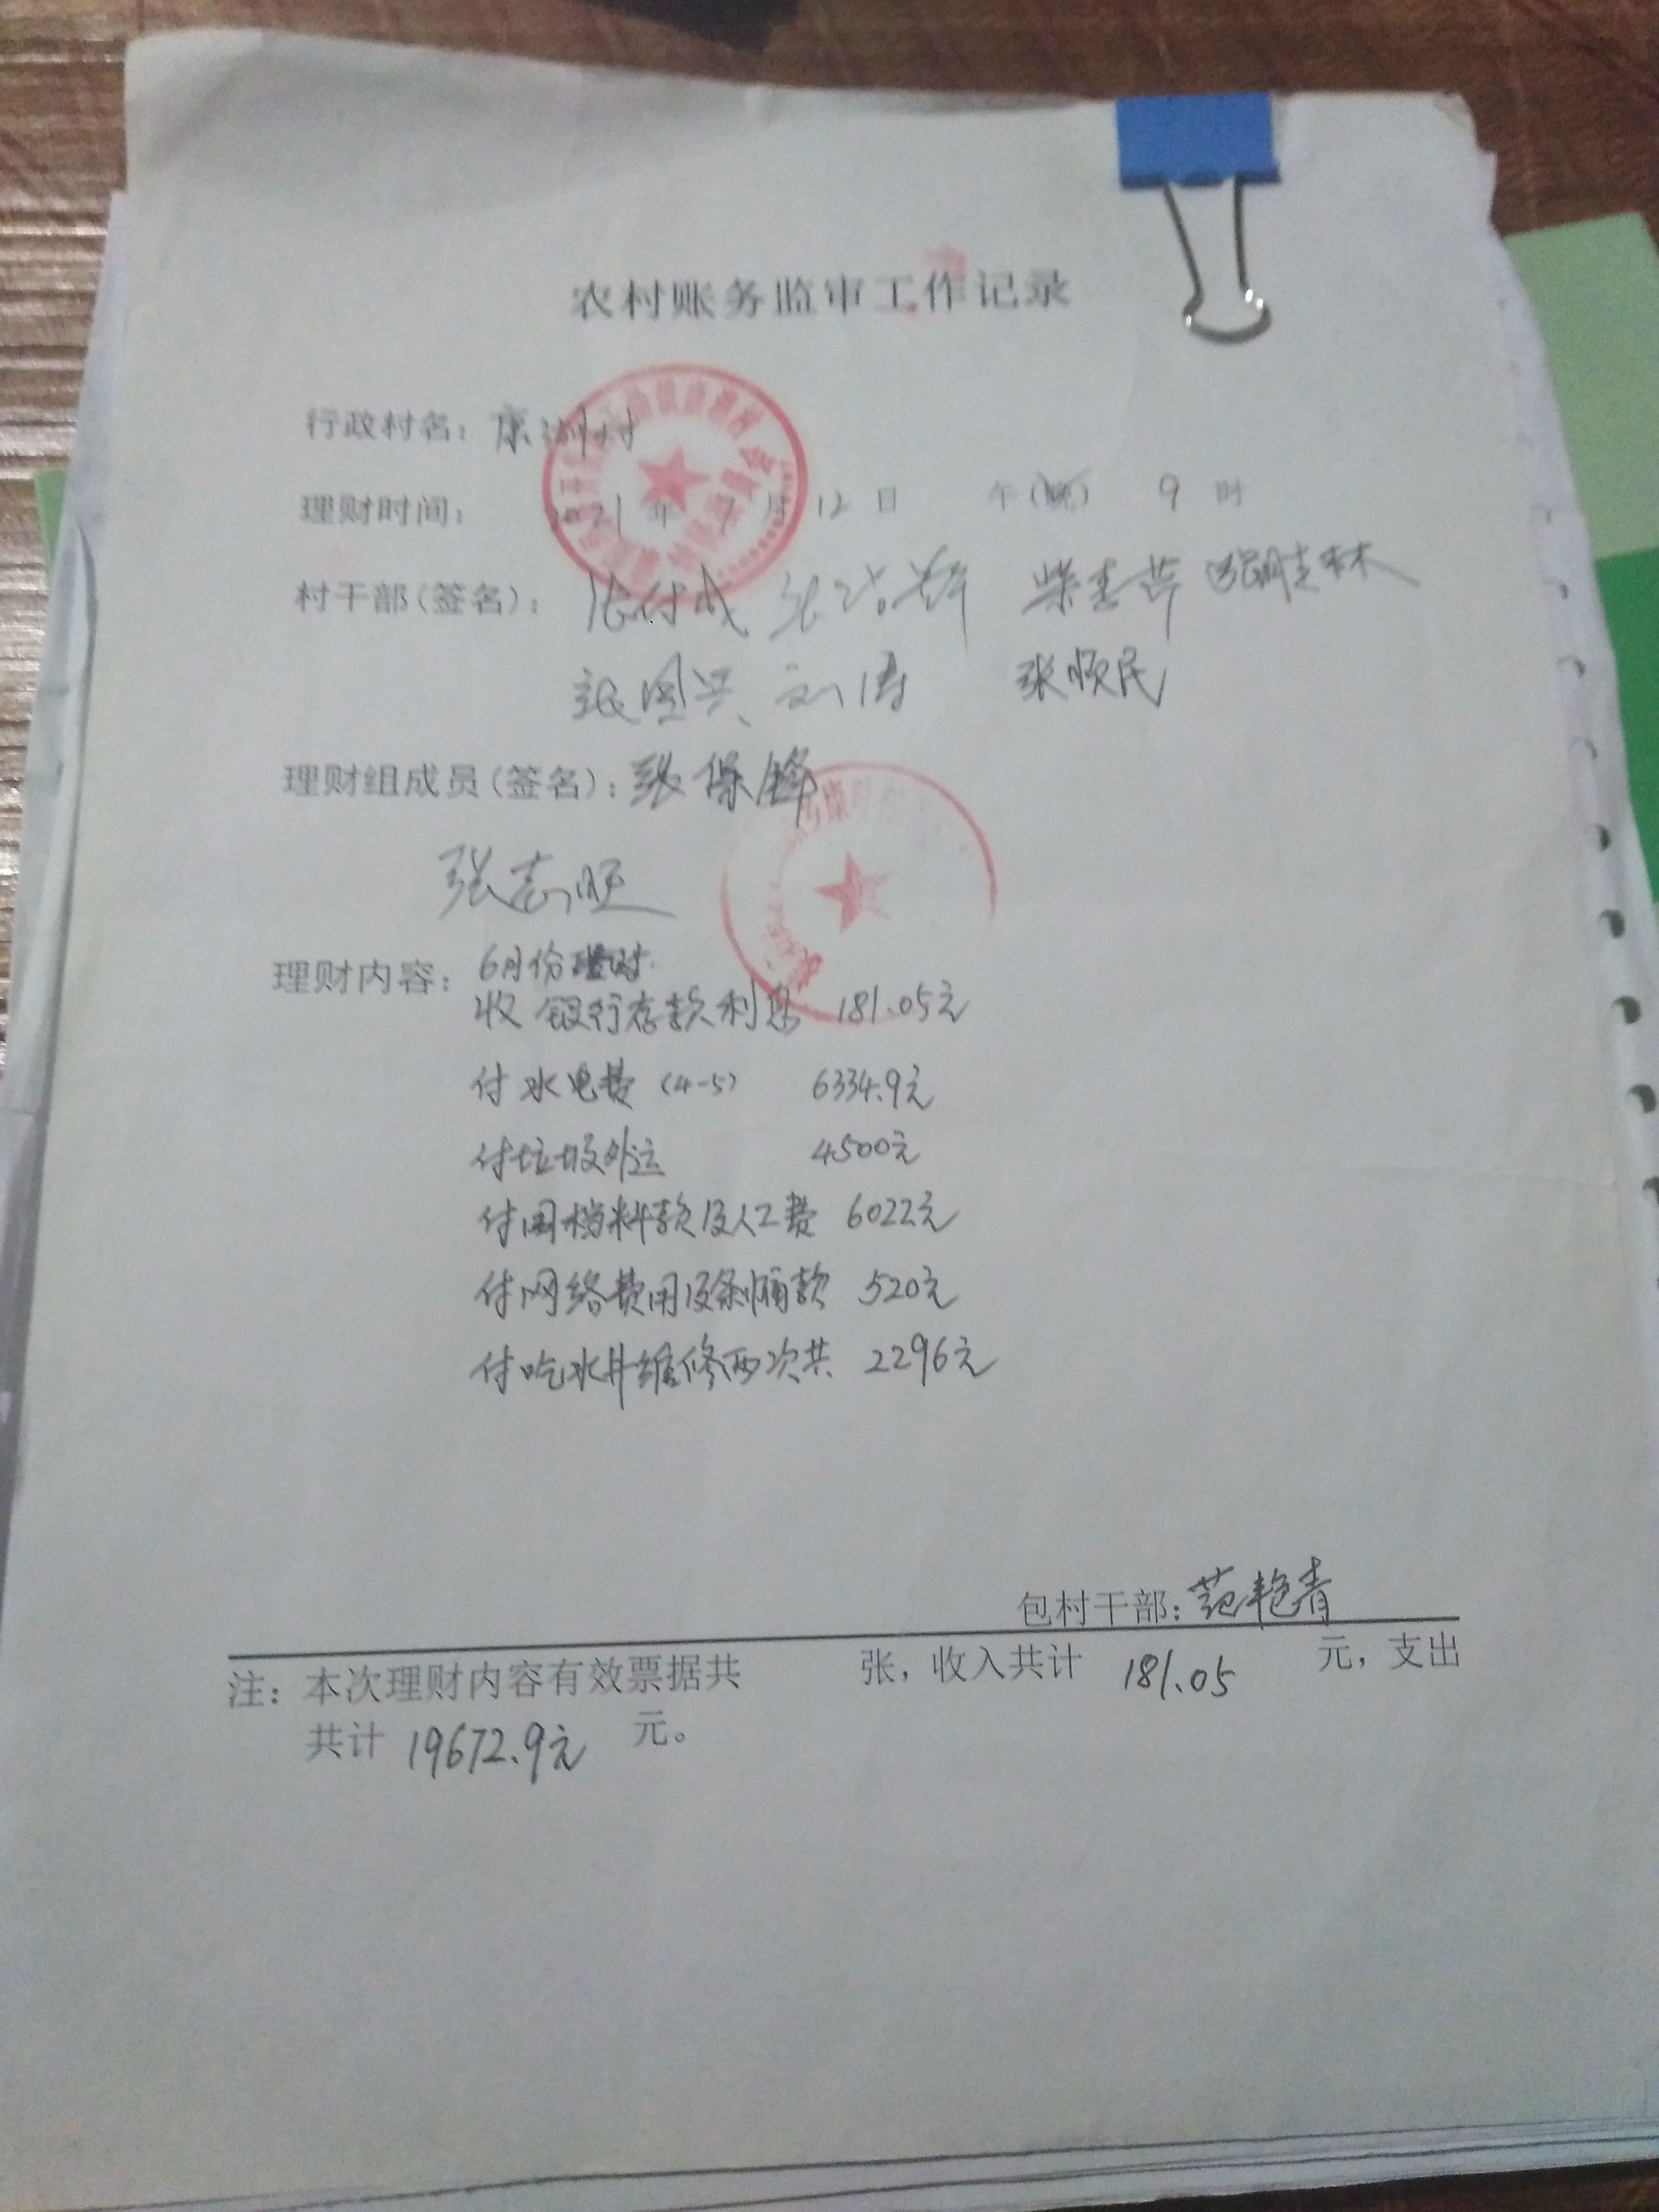 农村账务监审工作记录
行政村名：康湖村
理财时间：2021年7月12日 午(晚) 9时
村干部(签名)：张付成 柴春芹
张国兴、刘涛 张顺民
理财组成员(签名)：张保锋
张志旺
理财内容：6月份理财
收银行存款利息 181.05元
付水电费(4-5) 6334.9元
付垃圾外运 4500元
付围档料款及人工费 6022元
付网络费用及条幅款 520元
付吃水井维修两次共 2296元
包村干部：范艳青
注：本次理财内容有效票据共 张，收入共计 181.05 元，支出
共计 19672.9元 元。